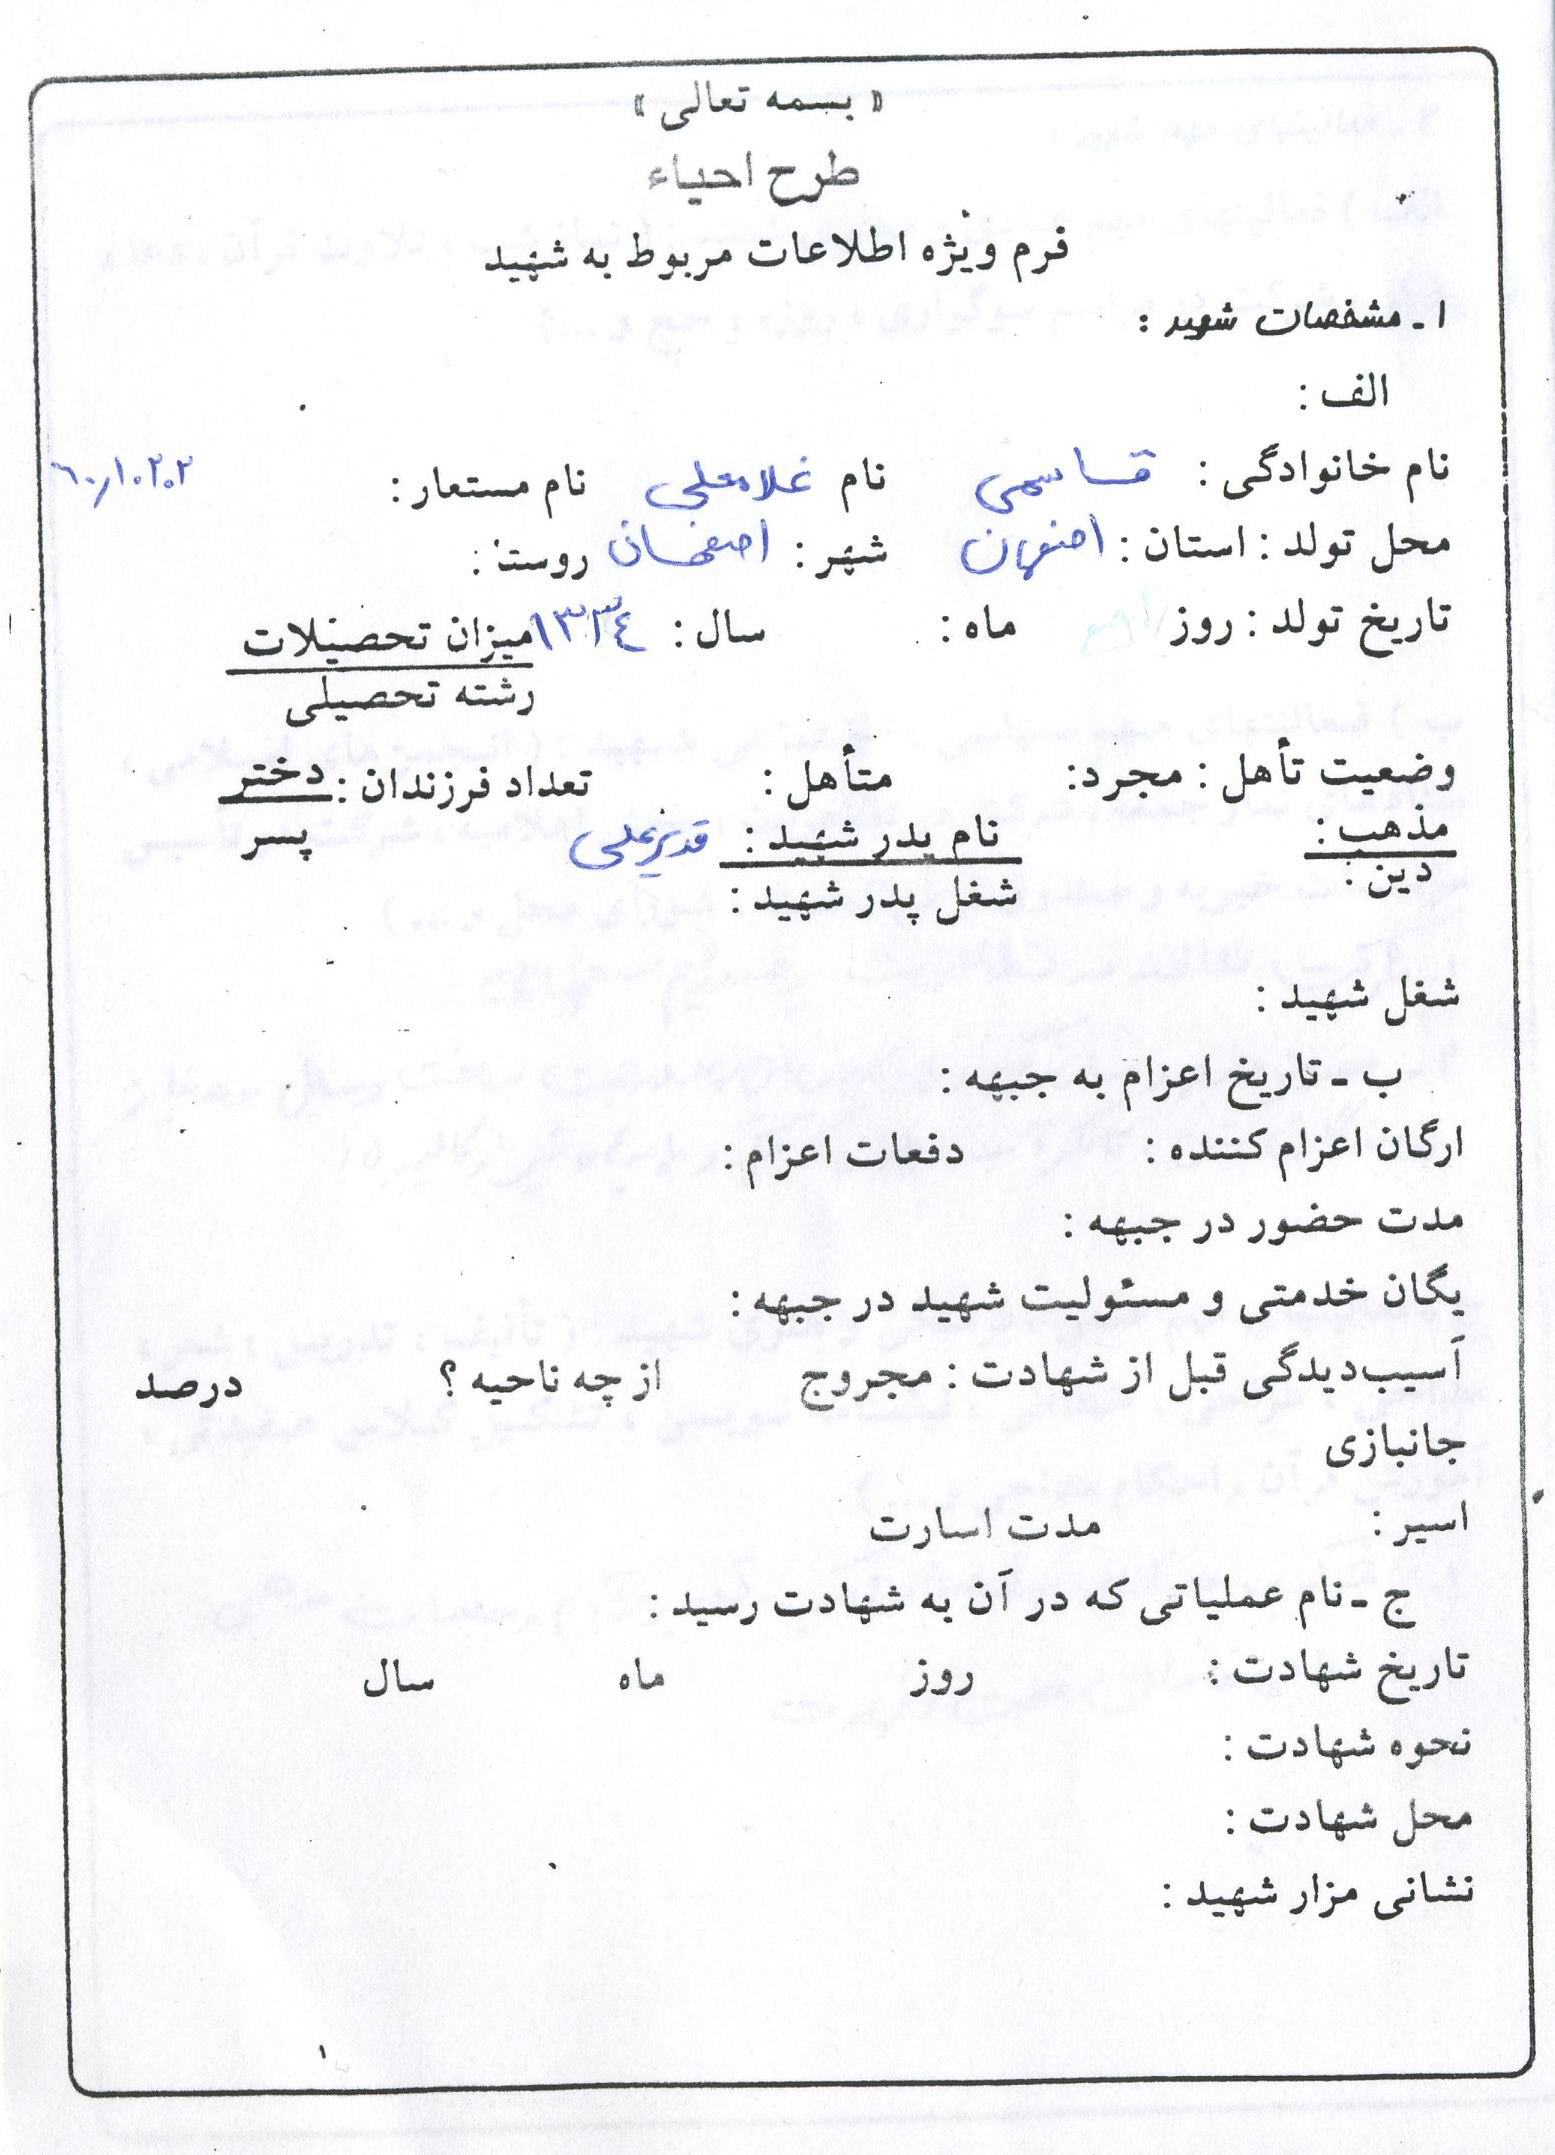 « بسمه تعالی »
طرح احیاء
فرم ویژه اطلاعات مربوط به شهید
۱ ـ مشخصات شهید :
الف :
نام خانوادگی : قاسمی نام غلامعلی نام مستعار :
محل تولد : استان : اصفهان شهر : اصفهان روستا :
تاریخ تولد : روز ماه : سال : ۱۳۳۴ میزان تحصیلات
رشته تحصیلی
وضعیت تأهل : مجرد: متأهل : تعداد فرزندان : دختر
مذهب : نام پدر شهید : قدیرعلی پسر
دین : شغل پدر شهید :
شغل شهید :
ب ـ تاریخ اعزام به جبهه :
ارگان اعزام کننده : دفعات اعزام :
مدت حضور در جبهه :
یگان خدمتی و مسئولیت شهید در جبهه :
آسیب‌دیدگی قبل از شهادت : مجروج از چه ناحیه ؟ درصد
جانبازی
اسیر : مدت اسارت
ج ـ نام عملیاتی که در آن به شهادت رسید :
تاریخ شهادت : روز ماه سال
نحوه شهادت :
محل شهادت :
نشانی مزار شهید :
۱